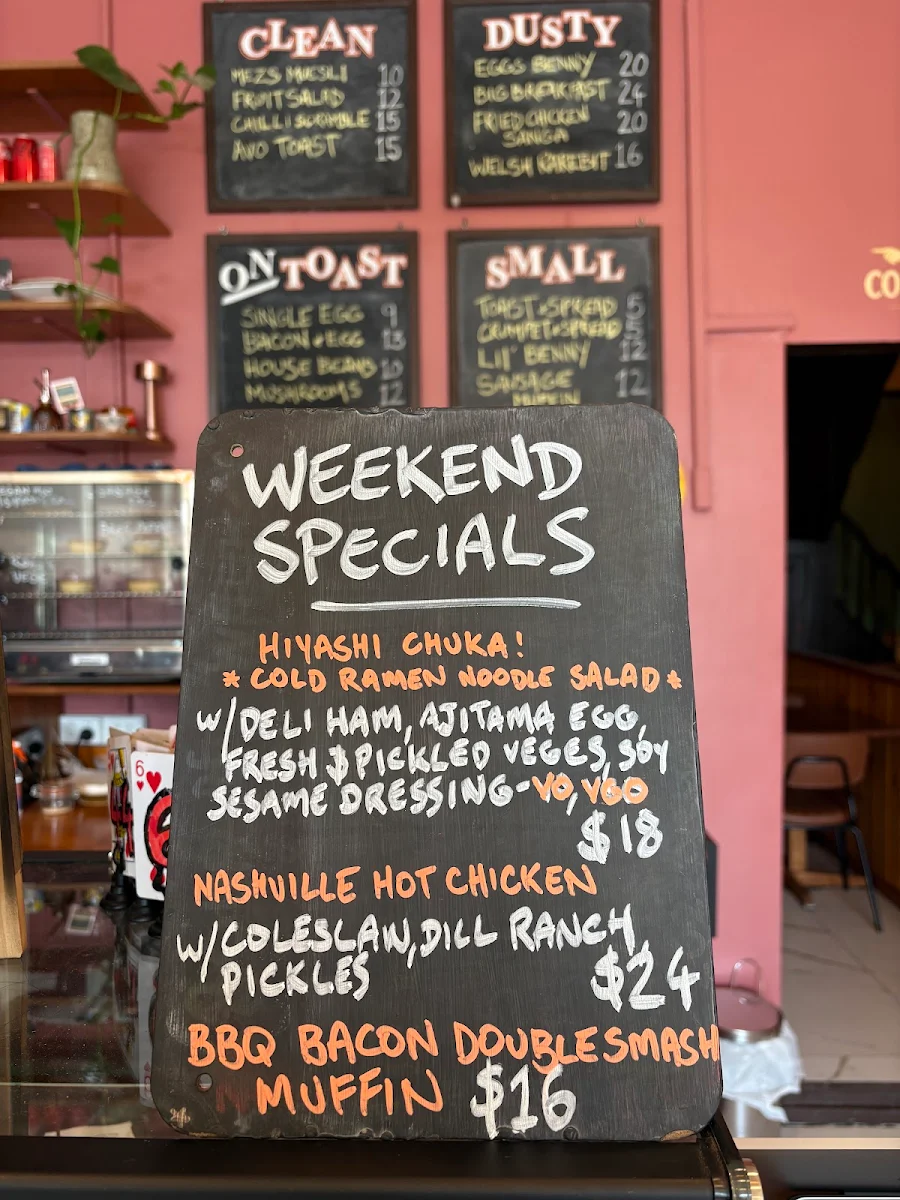 CLEAN
MEZS MUESLI 10
FRUIT SALAD 12
CHILLI SCRAMBLE 15
AVO TOAST 15
DUSTY
EGGS BENNY 20
BIG BREAKFAST 24
FRIED CHICKEN 20
SANGA
WELSH RAREBIT 16
ON TOAST
SINGLE EGG 9
BACON + EGG 13
HOUSE BEANS 10
MUSHROOMS 12
SMALL
TOAST + SPREAD 5
CRUMPET + SPREAD 5
LIL' BENNY 12
SAUSAGE 12
MUFFIN
CO
WEEKEND
SPECIALS
HIYASHI CHUKA!
* COLD RAMEN NOODLE SALAD *
W/ DELI HAM, AJITAMA EGG,
FRESH & PICKLED VEGES, SOY
SESAME DRESSING - VO, VGO
$18
NASHVILLE HOT CHICKEN
W/ COLESLAW, DILL RANCH,
PICKLES $24
BBQ BACON DOUBLE SMASH
MUFFIN $16
6